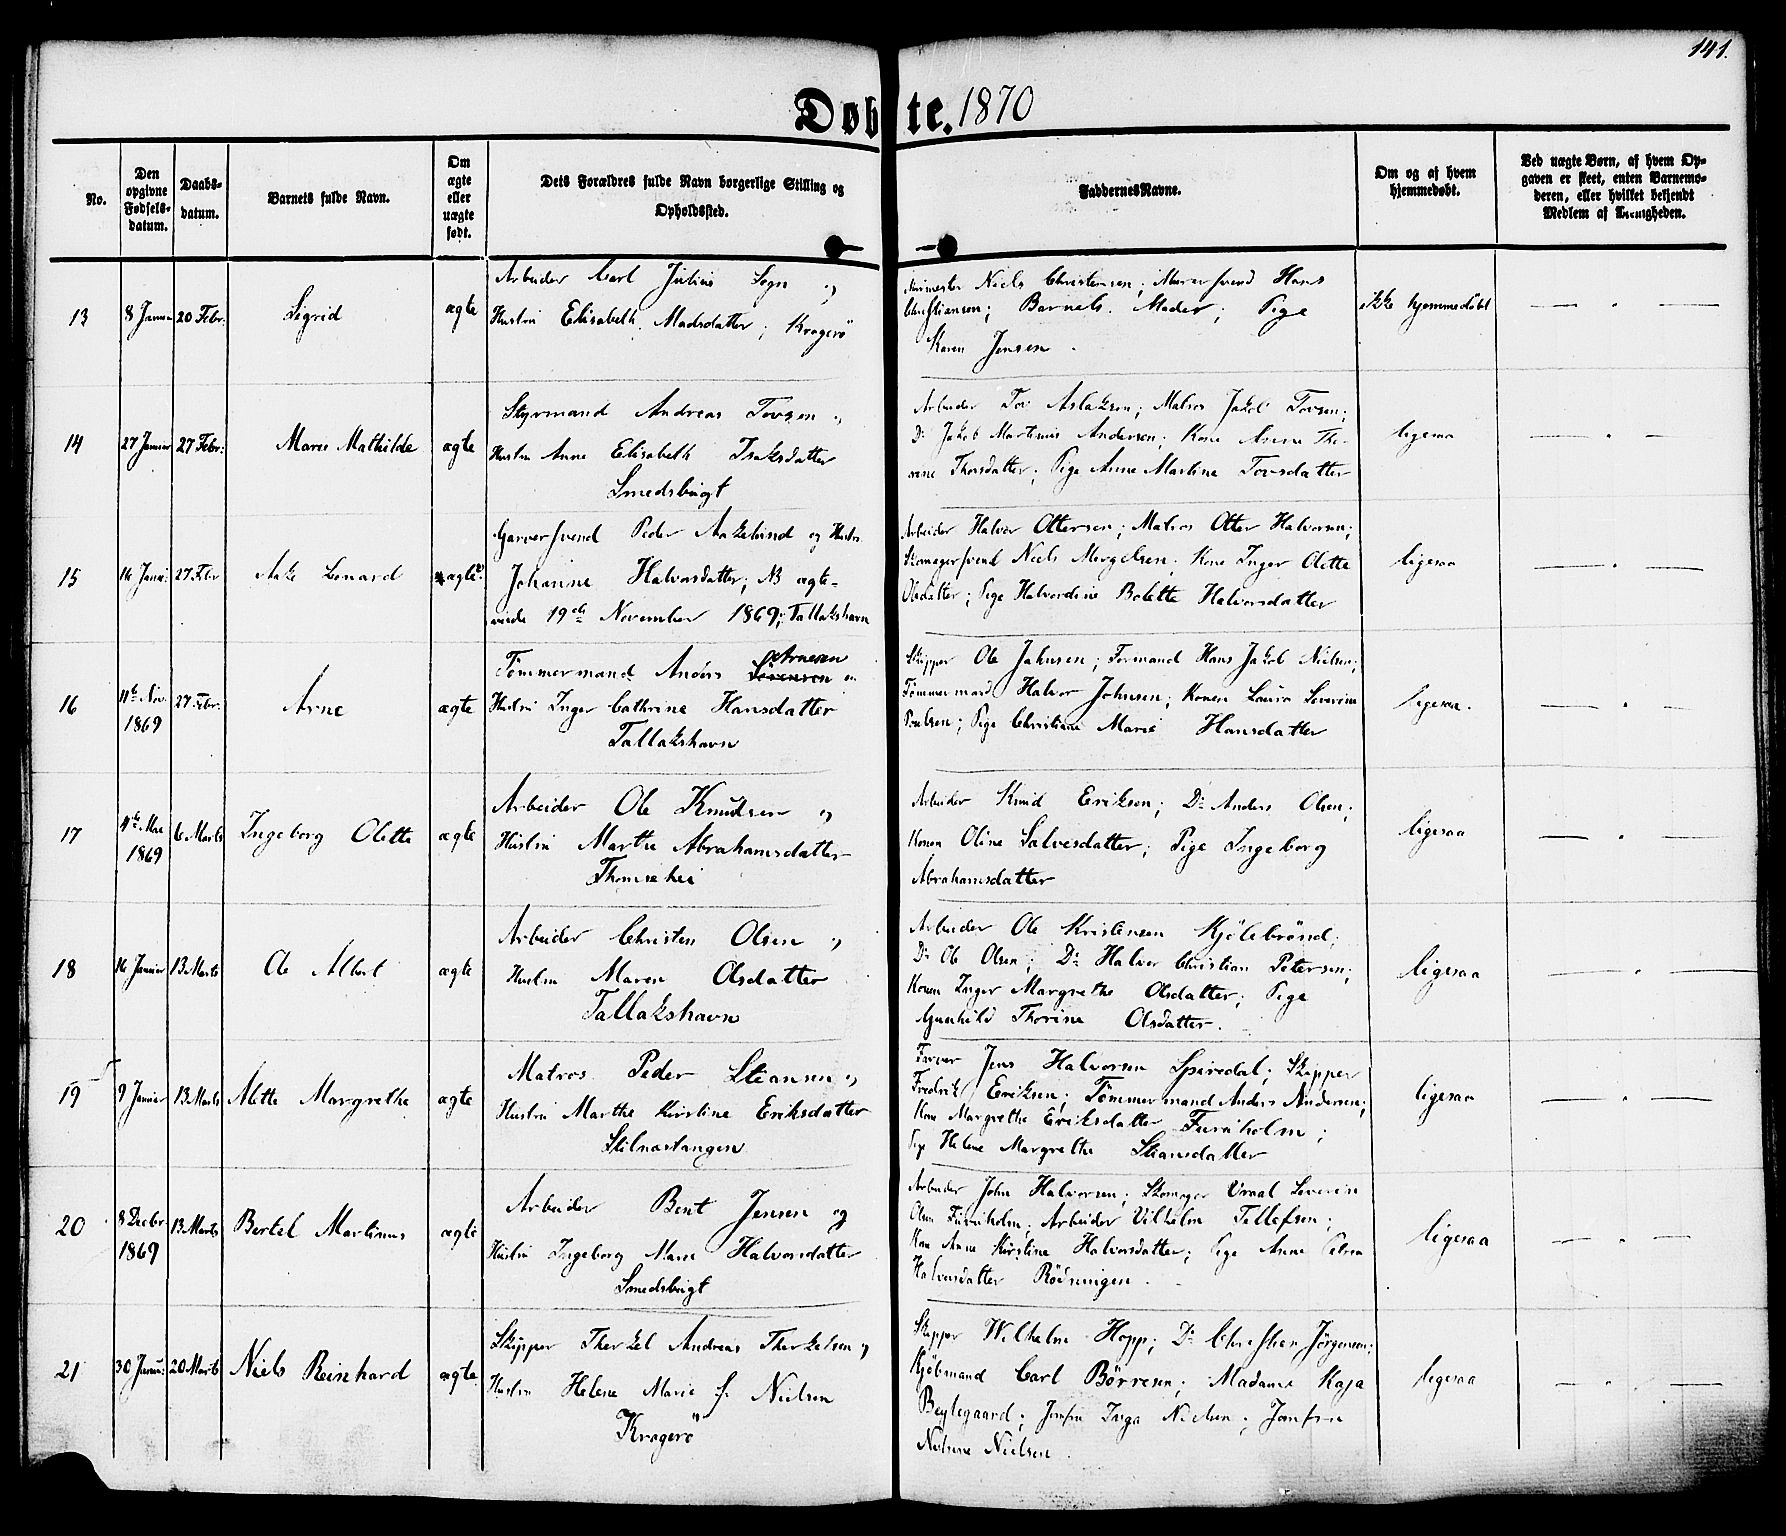 141.
Døbte. 1870
No.
Den opgivne Fødsels-datum.
Daabs-datum.
Barnets fulde Navn.
Om ægte eller uægte født.
Dets Forældres fulde Navn borgerlige Stilling og Opholdssted.
Faddernes Navne.
Om og af hvem hjemmedøbt.
Ved uægte Børn, af hvem Op-
gaven er skeet, enten Barnemo-
deren, eller hvilket betjendt
Medlem af Menigheden.
13
8 Januar
20 Febr:
Sigrid
ægte
Arbeider Carl Julius Sogn og
Hustru Elisabeth Madsdatter; Kragerö
Niels Christensen; Murersvend Hans
Christiansen; Barnets Moder; Pige
Karen Jensen.
ikke hjemmedöbt
14
27 Januar
27 Febr:
Maren Mathilde
ægte
Styrmand Andreas Tovsen og
Hustru Anne Elisabeth Isaksdatter
Smedsbugt
Arbeider Tov Aslaksen; Matros Jakob Tovsen;
Do Jakob Martinius Andersen; Kone Anne The-
rene Thorsdatter; Pige Anne Martine Tovsdatter
ligesaa
15
16 Janu:
27 Febr
Aake Lenard
ægte
Garversvend Peder Aakelund og Hustru
Johanne Halvorsdatter; NB ægte-
viede 19de November 1869; Tallakshavn
Arbeider Halvor Ottersen; Matros Otter Halvorsen;
Skomagersvend Niels Mergelsen; Kone Inger Olette
Olsdatter; Pige Halvordine Bolette Halvorsdatter
ligesaa
16
11te Nov. 1869
27 Febr:
Arne
ægte
Arnesen
Tömmermand Anders Sörensen og
Hustru Inger Cathrine Hansdatter
Tallakshavn
Skipper Ole Johnsen; Formand Hans Jakob Nielsen;
Tömmermand Halvor Johnsen; Konen Laura Severine
Poulsen; Pige Christiane Marie Hansdatter
ligesaa.
17
11te Mai 1869
6 Marts
Ingeborg Olette
ægte
Arbeider Ole Knudsen og
Hustru Marthe Abrahamsdatter
Thomashei
Arbeider Knud Eriksen; Do Anders Olsen;
Konen Oline Salvesdatter; Pige Ingeborg
Abrahamsdatter
ligesaa
18
16 Januar
13 Marts
Ole Albert
ægte
Arbeider Christen Olsen og
Hustru Maren Olsdatter
Tallakshavn
Arbeider Ole Kristensen Kjölebrönd;
Do Ole Olsen; Do Halvor Christian Petersen;
Konen Inger Margrethe Olsdatter; Pige
Gunhild Thorine Olsdatter.
ligesaa
19
9 Januar
13 Marts
Mette Margrethe
ægte
Matros Peder Stiansen og
Hustru Marthe Kirstine Eriksdatter
Stilnestangen
Farver Jens Halvorsen Spiredal; Skipper
Fredrik Eriksen; Tömmermand Anders Andersen;
Kone Margrethe Eriksdatter Furuholm;
Pige Helene Margrethe Stiansdatter
ligesaa
20
8 Decbr 1869
13 Marts
Bertel Martinus
ægte
Arbeider Bent Jensen og
Hustru Ingeborg Marie Halvorsdatter
Smedsbugt
Arbeider John Halvorsen; Skomager Vraal Severin
Olsen Furuholm; Arbeider Vilhelm Tellefsen;
Kone Anne Kirstine Halvorsdatter; Pige Anne
Halvorsdatter Rödningen.
ligesaa
21
30 Janu:
20 Marts
Niels Reinhard
ægte
Skipper Therkel Andreas Therkelsen og
Hustru Helene Marie f. Nielsen
Kragerö
Skipper Wilhelm Hopp; Do Christian Jörgensen;
Kjöbmand Carl Börresen; Madame Kaja
Beylegaard; Jomfru Inga Nielsen; Jomfru
Nielsen.
ligesaa